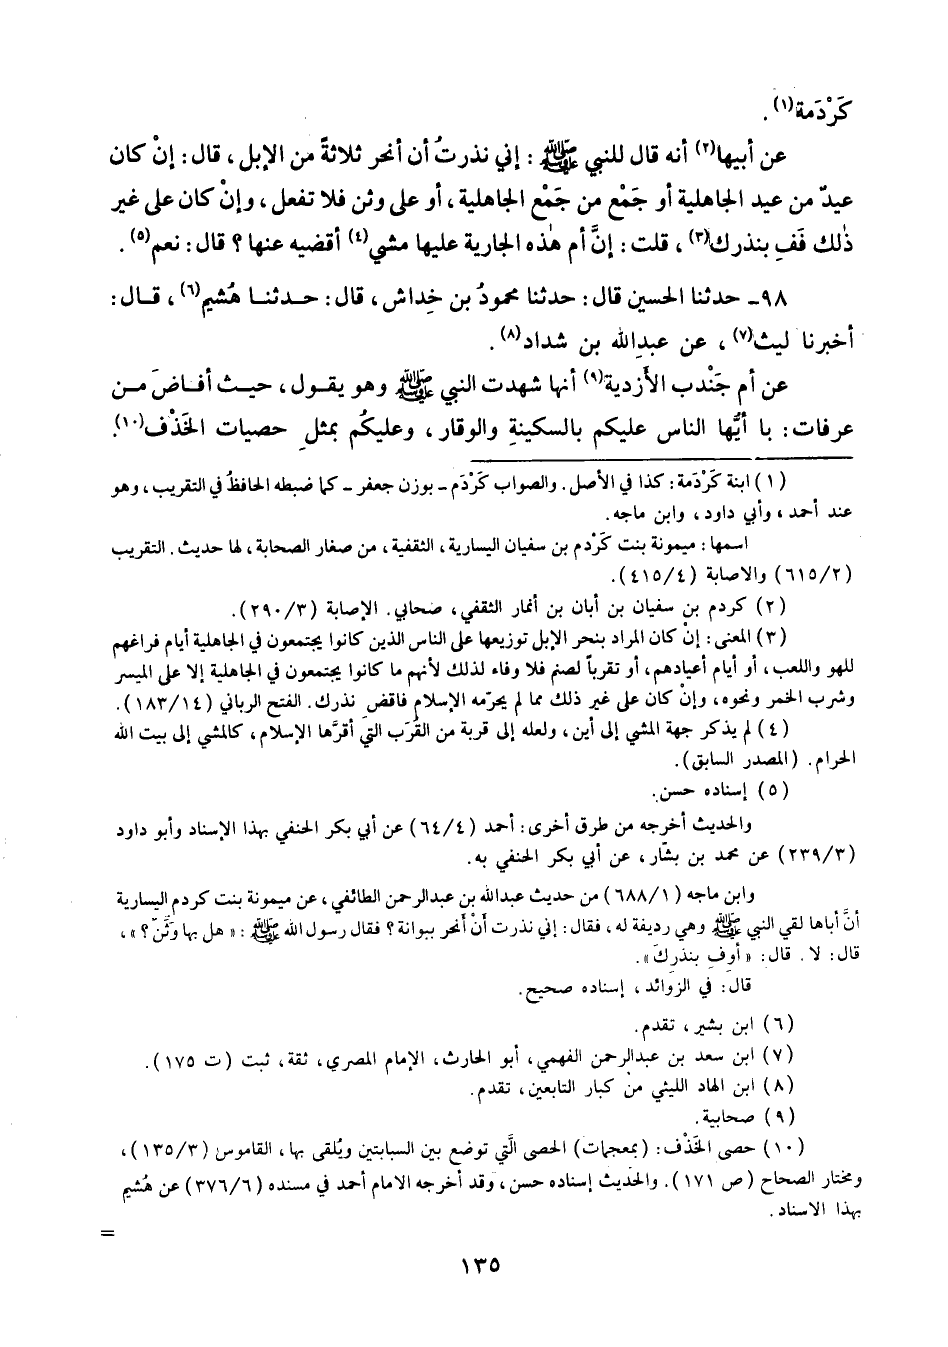 كَرْدَمة(١).
عن أبيها(٢) أنه قال للنبي ﷺ : إني نذرتُ أن أنحر ثلاثةً من الإبل، قال: إنْ كان
عيدٌ من عيد الجاهلية أو جَمْع من جَمْع الجاهلية، أو على وثن فلا تفعل، وإنْ كان على غير
ذٰلك فَفِ بنذرك(٣)، قلت: إنَّ أم هٰذه الجارية عليها مشي(٤) أقضيه عنها؟ قال: نعم(٥).
٩٨ـ حدثنا الحسين قال: حدثنا محمودُ بن خِداش، قال: حـدثنـا هُشيم(٦)، قـال:
أخبرنا ليث(٧)، عن عبدِالله بن شداد(٨).
عن أم جَنْدب الأَزدية(٩) أنها شهدت النبي ﷺ وهو يقول، حيـث أفـاضَ مـن
عرفات: با أيُّها الناس عليكم بالسكينةِ والوقار، وعليكُم بمثلِ حصيات الخَذْف(١٠).
(١) ابنة كَرْدَمة: كذا في الأصل. والصواب كَرْدَم ـ بوزن جعفر ـ كما ضبطه الحافظُ في التقريب، وهو
عند أحمد، وأبي داود، وابن ماجه.
اسمها: ميمونة بنت كَرْدم بن سفيان اليسارية، الثقفية، من صغار الصحابة، لها حديث. التقريب
(٦١٥/٢) والاصابة (٤١٥/٤).
(٢) كردم بن سفيان بن أبان بن أنمار الثقفي، صحابي. الإصابة (٢٩٠/٣).
(٣) المعنى: إنْ كان المراد بنحر الإبل توزيعها على الناس الذين كانوا يجتمعون في الجاهلية أيام فراغهم
للهو واللعب، أو أيام أعيادهم، أو تقرباً لصنم فلا وفاء لذلك لأنهم ما كانوا يجتمعون في الجاهلية إلا على الميسر
وشرب الخمر ونحوه، وإنْ كان على غير ذلك مما لم يحرّمه الإسلام فاقض نذرك. الفتح الرباني (١٨٣/١٤).
(٤) لم يذكر جهة المشي إلى أين، ولعله إلى قربة من القُرَب التي أقرَّها الإسلام، كالمشي إلى بيت الله
الحرام. (المصدر السابق).
(٥) إسناده حسن.
والحديث أخرجه من طرق أخرى: أحمد (٦٤/٤) عن أبي بكر الحنفي بهذا الإسناد وأبو داود
(٢٣٩/٣) عن محمد بن بشّار، عن أبي بكر الحنفي به.
وابن ماجه (٦٨٨/١) من حديث عبدالله بن عبدالرحمن الطائفي، عن ميمونة بنت كردم اليسارية
أنَّ أباها لقي النبي ﷺ وهي رديفة له، فقال: إني نذرت أنْ أنحر ببوانة؟ فقال رسول الله ﷺ: «هل بها وَثَنٌ؟»،
قال: لا. قال: «أوفِ بنذركَ».
قال: في الزوائد، إسناده صحيح.
(٦) ابن بشير، تقدم.
(٧) ابن سعد بن عبدالرحمن الفهمي، أبو الحارث، الإمام المصري، ثقة، ثبت (ت ١٧٥).
(٨) ابن الهاد الليثي من كبار التابعين، تقدم.
(٩) صحابية.
(١٠) حصى الخَذْف: (بمعجمات) الحصى الَّتي توضع بين السبابتين ويُلقى بها، القاموس (١٣٥/٣)،
ومختار الصحاح (ص ١٧١). والحديث إسناده حسن، وقد أخرجه الامام أحمد في مسنده (٣٧٦/٦) عن هُشيم
بهذا الاسناد.
=
١٣٥